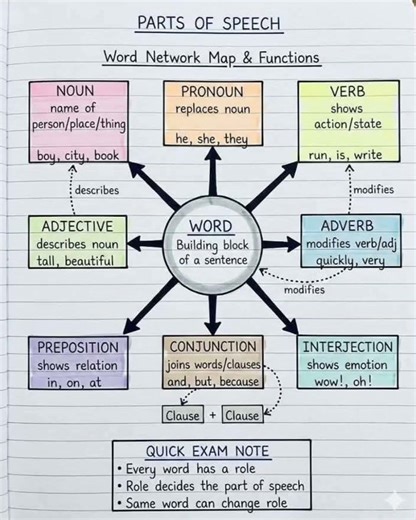 PARTS OF SPEECH
Word Network Map & Functions
NOUN
name of
person/place/thing
boy, city, book
PRONOUN
replaces noun
he, she, they
VERB
shows
action/state
run, is, write
describes
modifies
ADJECTIVE
describes noun
tall, beautiful
WORD
Building block
of a sentence
ADVERB
modifies verb/adj
quickly, very
modifies
PREPOSITION
shows relation
in, on, at
CONJUNCTION
joins words/clauses
and, but, because
INTERJECTION
shows emotion
wow!, oh!
Clause + Clause
QUICK EXAM NOTE
• Every word has a role
• Role decides the part of speech
• Same word can change role